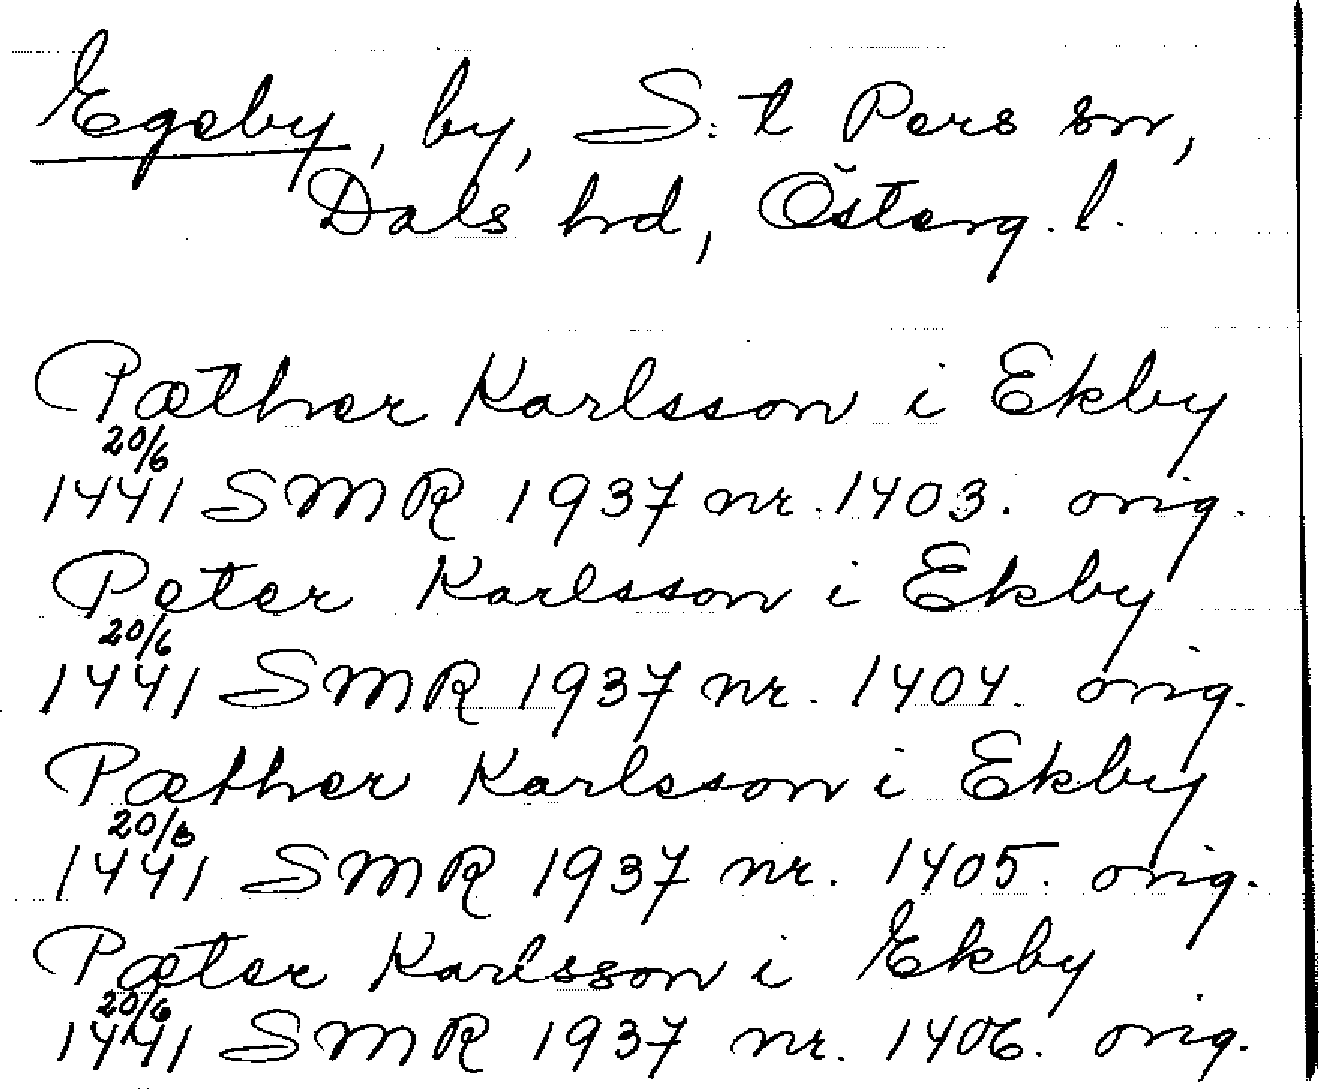 Egeby, by, S:t Pers sn,
Dals hd, Österg. l.
Pæther Karlsson i Ekby
20/6
1441 SMR 1937 nr. 1403. orig.
Peter Karlsson i Ekby
20/6
1441 SMR 1937 nr. 1404. orig.
Pæther Karlsson i Ekby
20/6
1441 SMR 1937 nr. 1405. orig.
Pæter Karlsson i Ekby
20/6
1441 SMR 1937 nr. 1406. orig.